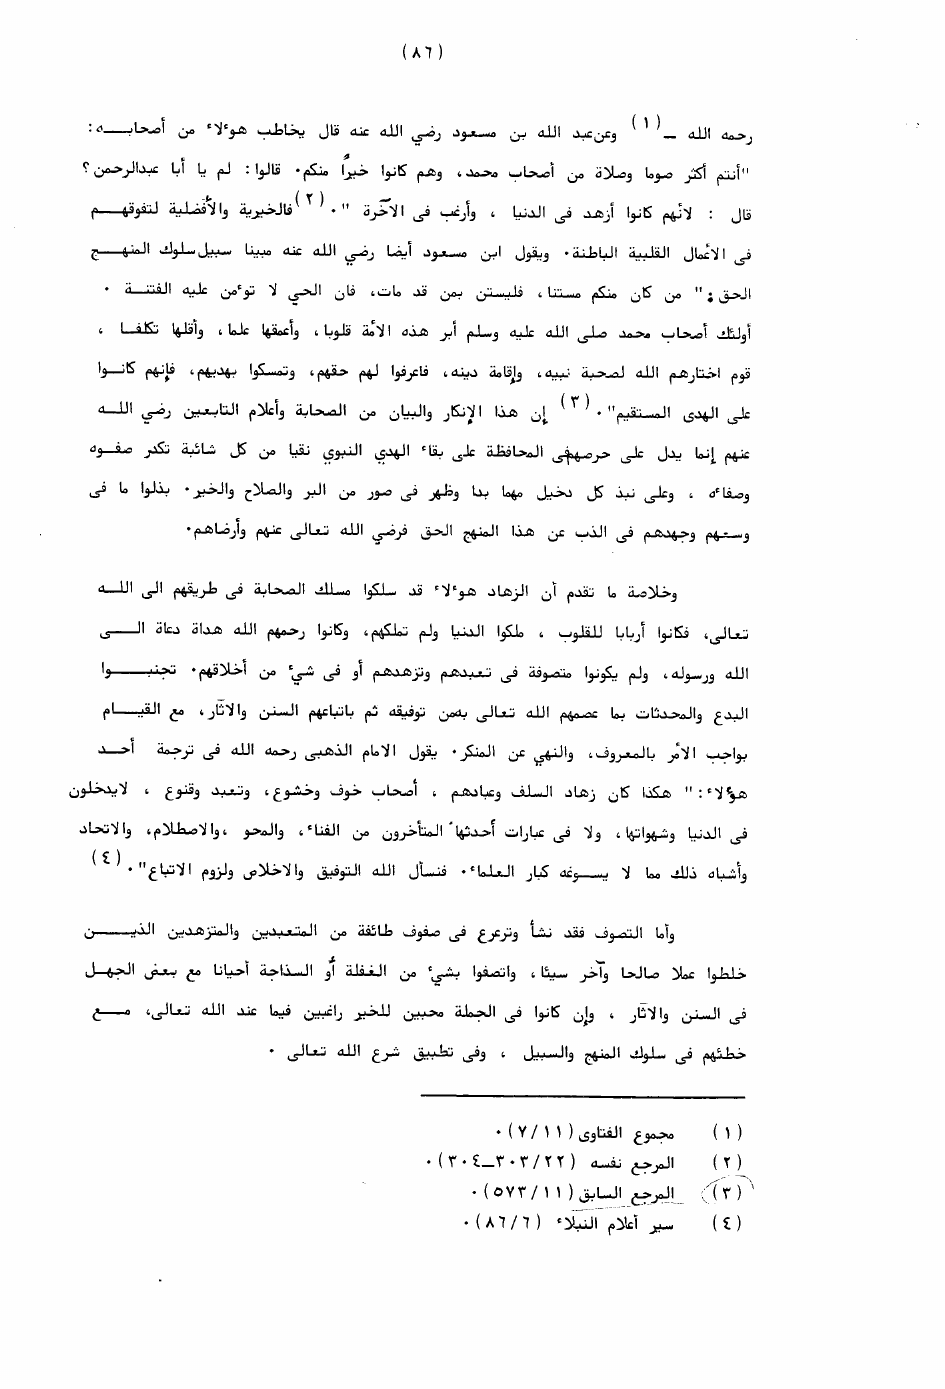 (٨٦)
رحمه الله ـ(١) وعن عبد الله بن مسعود رضي الله عنه قال يخاطب هؤلاء من أصحابـــه:
"أنتم أكثر صوما وصلاة من أصحاب محمد، وهم كانوا خيراً منكم. قالوا: لم يا أبا عبدالرحمن؟
قال : لأنهم كانوا أزهد فى الدنيا ، وأرغب فى الآخرة ".(٢) فالخيرية والأفضلية لتفوقهـــم
فى الأعمال القلبية الباطنة. ويقول ابن مسعود أيضا رضي الله عنه مبينا سبيل سلوك المنهـــج
الحق: " من كان منكم مستنا، فليستن بمن قد مات، فان الحي لا تؤمن عليه الفتنـــة .
أولئك أصحاب محمد صلى الله عليه وسلم أبر هذه الأمة قلوبا، وأعمقها علما، وأقلها تكلفـا ،
قوم اختارهم الله لصحبة نبيه، وإقامة دينه، فاعرفوا لهم حقهم، وتمسكوا بهديهم، فإنهم كانــوا
على الهدى المستقيم".(٣) إن هذا الإنكار والبيان من الصحابة وأعلام التابعين رضي اللــه
عنهم إنما يدل على حرصهم فى المحافظة على بقاء الهدي النبوي نقيا من كل شائبة تكدر صفــوه
وصفاءه ، وعلى نبذ كل دخيل مهما بدا وظهر فى صور من البر والصلاح والخير. بذلوا ما فى
وسعهم وجهدهم فى الذب عن هذا المنهج الحق فرضي الله تعالى عنهم وأرضاهم.
وخلاصة ما تقدم أن الزهاد هؤلاء قد سلكوا مسلك الصحابة فى طريقهم الى اللــه
تعالى، فكانوا أربابا للقلوب ، ملكوا الدنيا ولم تملكهم، وكانوا رحمهم الله هداة دعاة الـــى
الله ورسوله، ولم يكونوا متصوفة فى تعبدهم وتزهدهم أو فى شيء من أخلاقهم. تجنبـــوا
البدع والمحدثات بما عصمهم الله تعالى بمن توفيقه ثم باتباعهم السنن والآثار، مع القيـــام
بواجب الأمر بالمعروف، والنهي عن المنكر. يقول الامام الذهبى رحمه الله فى ترجمة أحــد
هؤلاء: " هكذا كان زهاد السلف وعبادهم ، أصحاب خوف وخشوع، وتعبد وقنوع ، لايدخلون
فى الدنيا وشهواتها، ولا فى عبارات أحدثها المتأخرون من الفناء، والمحو ،والاصطلام، والاتحاد
وأشباه ذلك مما لا يســوغه كبار العلماء. فنسأل الله التوفيق والاخلاص ولزوم الاتباع".(٤)
وأما التصوف فقد نشأ وترعرع فى صفوف طائفة من المتعبدين والمتزهدين الذيـــن
خلطوا عملا صالحا وآخر سيئا، واتصفوا بشيء من الغفلة أو السذاجة أحيانا مع بعض الجهــل
فى السنن والآثار ، وإن كانوا فى الجملة محبين للخير راغبين فيما عند الله تعالى، مـــع
خطئهم فى سلوك المنهج والسبيل ، وفى تطبيق شرع الله تعالى .
(١) مجموع الفتاوى (٧/١١).
(٢) المرجع نفسه (٣٠٣/٢٢ـ٣٠٤).
(٣) المرجع السابق (٥٧٣/١١).
(٤) سير أعلام النبلاء (٨٦/٦).